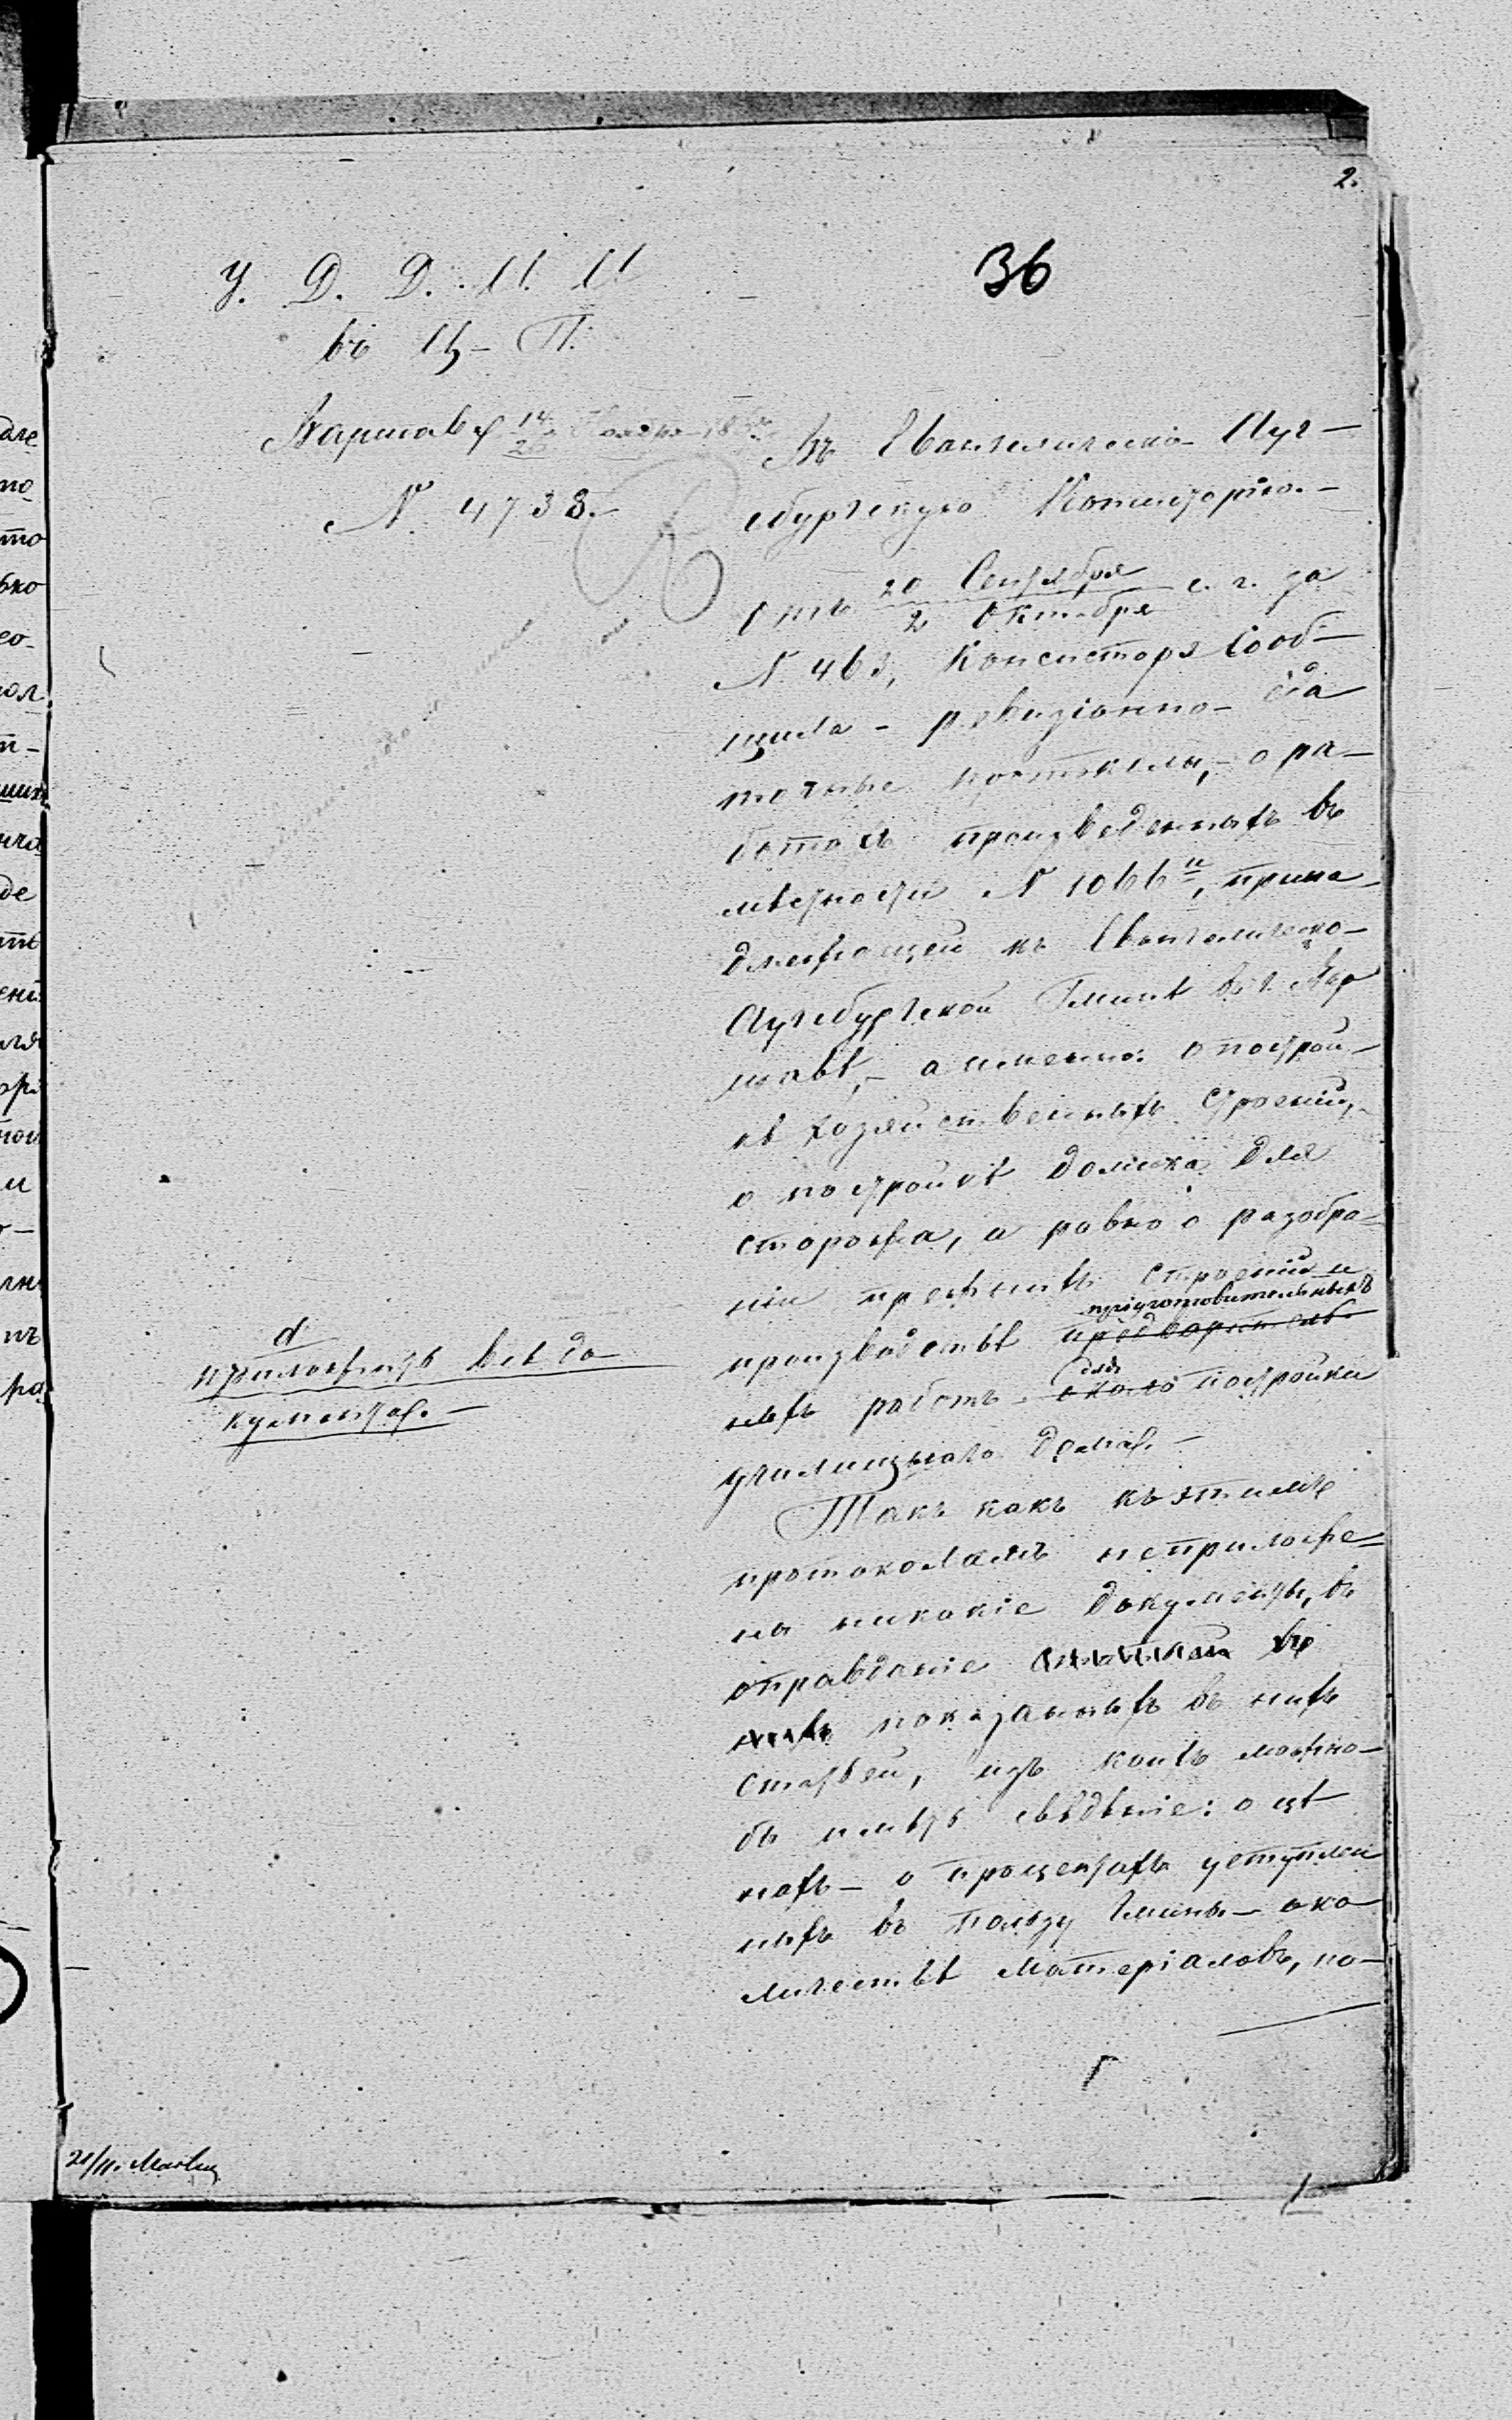 2.
36
У. Д. Д. И. И
въ Ц- П.
Варшава 14/26 Ноября 18
N. 4738.
Въ Евангелическо Ауг-
сбургскую Консисторію.-
Отъ 20 Сентября / 2 Октября с. г. за
N 463, Консисторія Сооб-
щила - ревизіонно- сда
точные протоколы,- о ра-
ботахъ произведенныхъ въ
мѣстности N 1066, прина-
длежащей къ Евангелическо-
Аугсбургской Гминѣ въ г. Вар
шавѣ,- а именно: о построй-
кѣ хозяйственныхъ строеній,-
о постройкѣ домика для
сторожа, а равно о разобра-
ніи прежнихъ строеній и
пріуготовительныхъ
производствѣ предваритель-
для
ныхъ работъ - около постройки
училищнаго дома.-
Такъ какъ къ этимъ
протоколамъ неприложе-
ны никакіе документы, въ
оправданіе
показанныхъ въ нихъ
статьей, изъ коихъ можно-
бы имѣть свѣдѣніе: о цѣ
нахъ - о процентахъ уступлен
ныхъ въ пользу Гмины - око-
личествѣ матеріаловъ, по-
приложить всѣ до-
кумента.-
21/11.